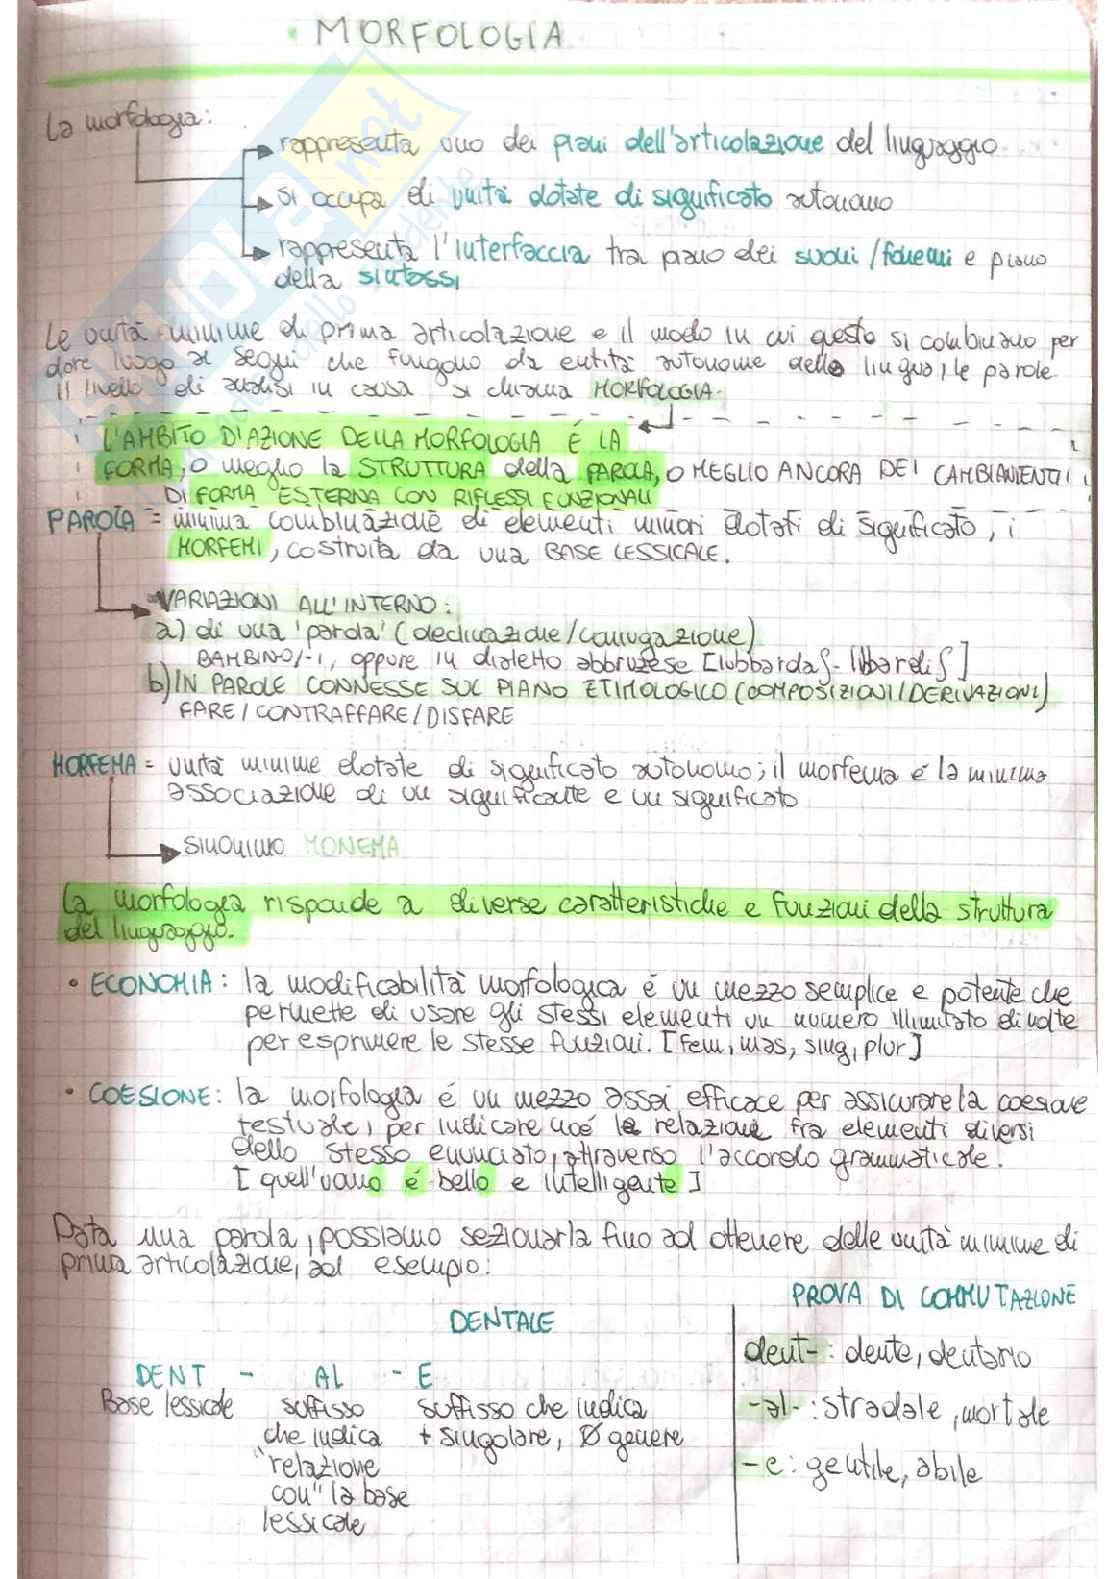 • MORFOLOGIA
La morfologia:
rappresenta uno dei piani dell'articolazione del linguaggio
si occupa di unità dotate di significato autonomo
rappresenta l'interfaccia tra piano dei suoni/fonemi e piano
della sintassi
Le unità minime di prima articolazione e il modo in cui questo si combinano per
dare luogo ai segni che fungono da entità autonome della lingua, le parole.
Il livello di analisi in causa si chiama MORFOLOGIA.
L'AMBITO D'AZIONE DELLA MORFOLOGIA É LA
FORMA, o meglio la STRUTTURA della PAROLA, O MEGLIO ANCORA DEI CAMBIAMENTI
DI FORMA ESTERNA CON RIFLESSI FUNZIONALI
PAROLA = minima combinazione di elementi minori dotati di significato, i
MORFEMI, costruita da una BASE LESSICALE.
VARIAZIONI ALL'INTERNO:
a) di una 'parola' (declinazione/coniugazione)
BAMBINO/-I, oppure in dialetto abbruzese
b) IN PAROLE CONNESSE SUL PIANO ETIMOLOGICO (COMPOSIZIONI/DERIVAZIONI)
FARE/CONTRAFFARE/DISFARE
MORFEMA = unità minime dotate di significato autonomo; il morfema é la minima
associazione di un significante e un significato
sinonimo MONEMA
La morfologia risponde a diverse caratteristiche e funzioni della struttura
del linguaggio.
• ECONOMIA: la modificabilità morfologica é un mezzo semplice e potente che
permette di usare gli stessi elementi un numero illimitato di volte
per esprimere le stesse funzioni. [fem, mas, sing, plur]
• COESIONE: la morfologia é un mezzo assai efficace per assicurare la coesione
testuale, per indicare cioé le relazioni fra elementi diversi
dello stesso enunciato, attraverso l'accordo grammaticale.
[quell'uomo é bello e intelligente]
Data una parola, possiamo sezionarla fino ad ottenere delle unità minime di
prima articolazione, ad esempio:
PROVA DI COMMUTAZIONE
DENTALE
dent-: dente, dentario
DENT - AL - E
Base lessicale suffisso suffisso che indica
-al-: stradale, mortale
che indica + singolare, Ø genere
"relazione
-e: gentile, abile
con" la base
lessicale